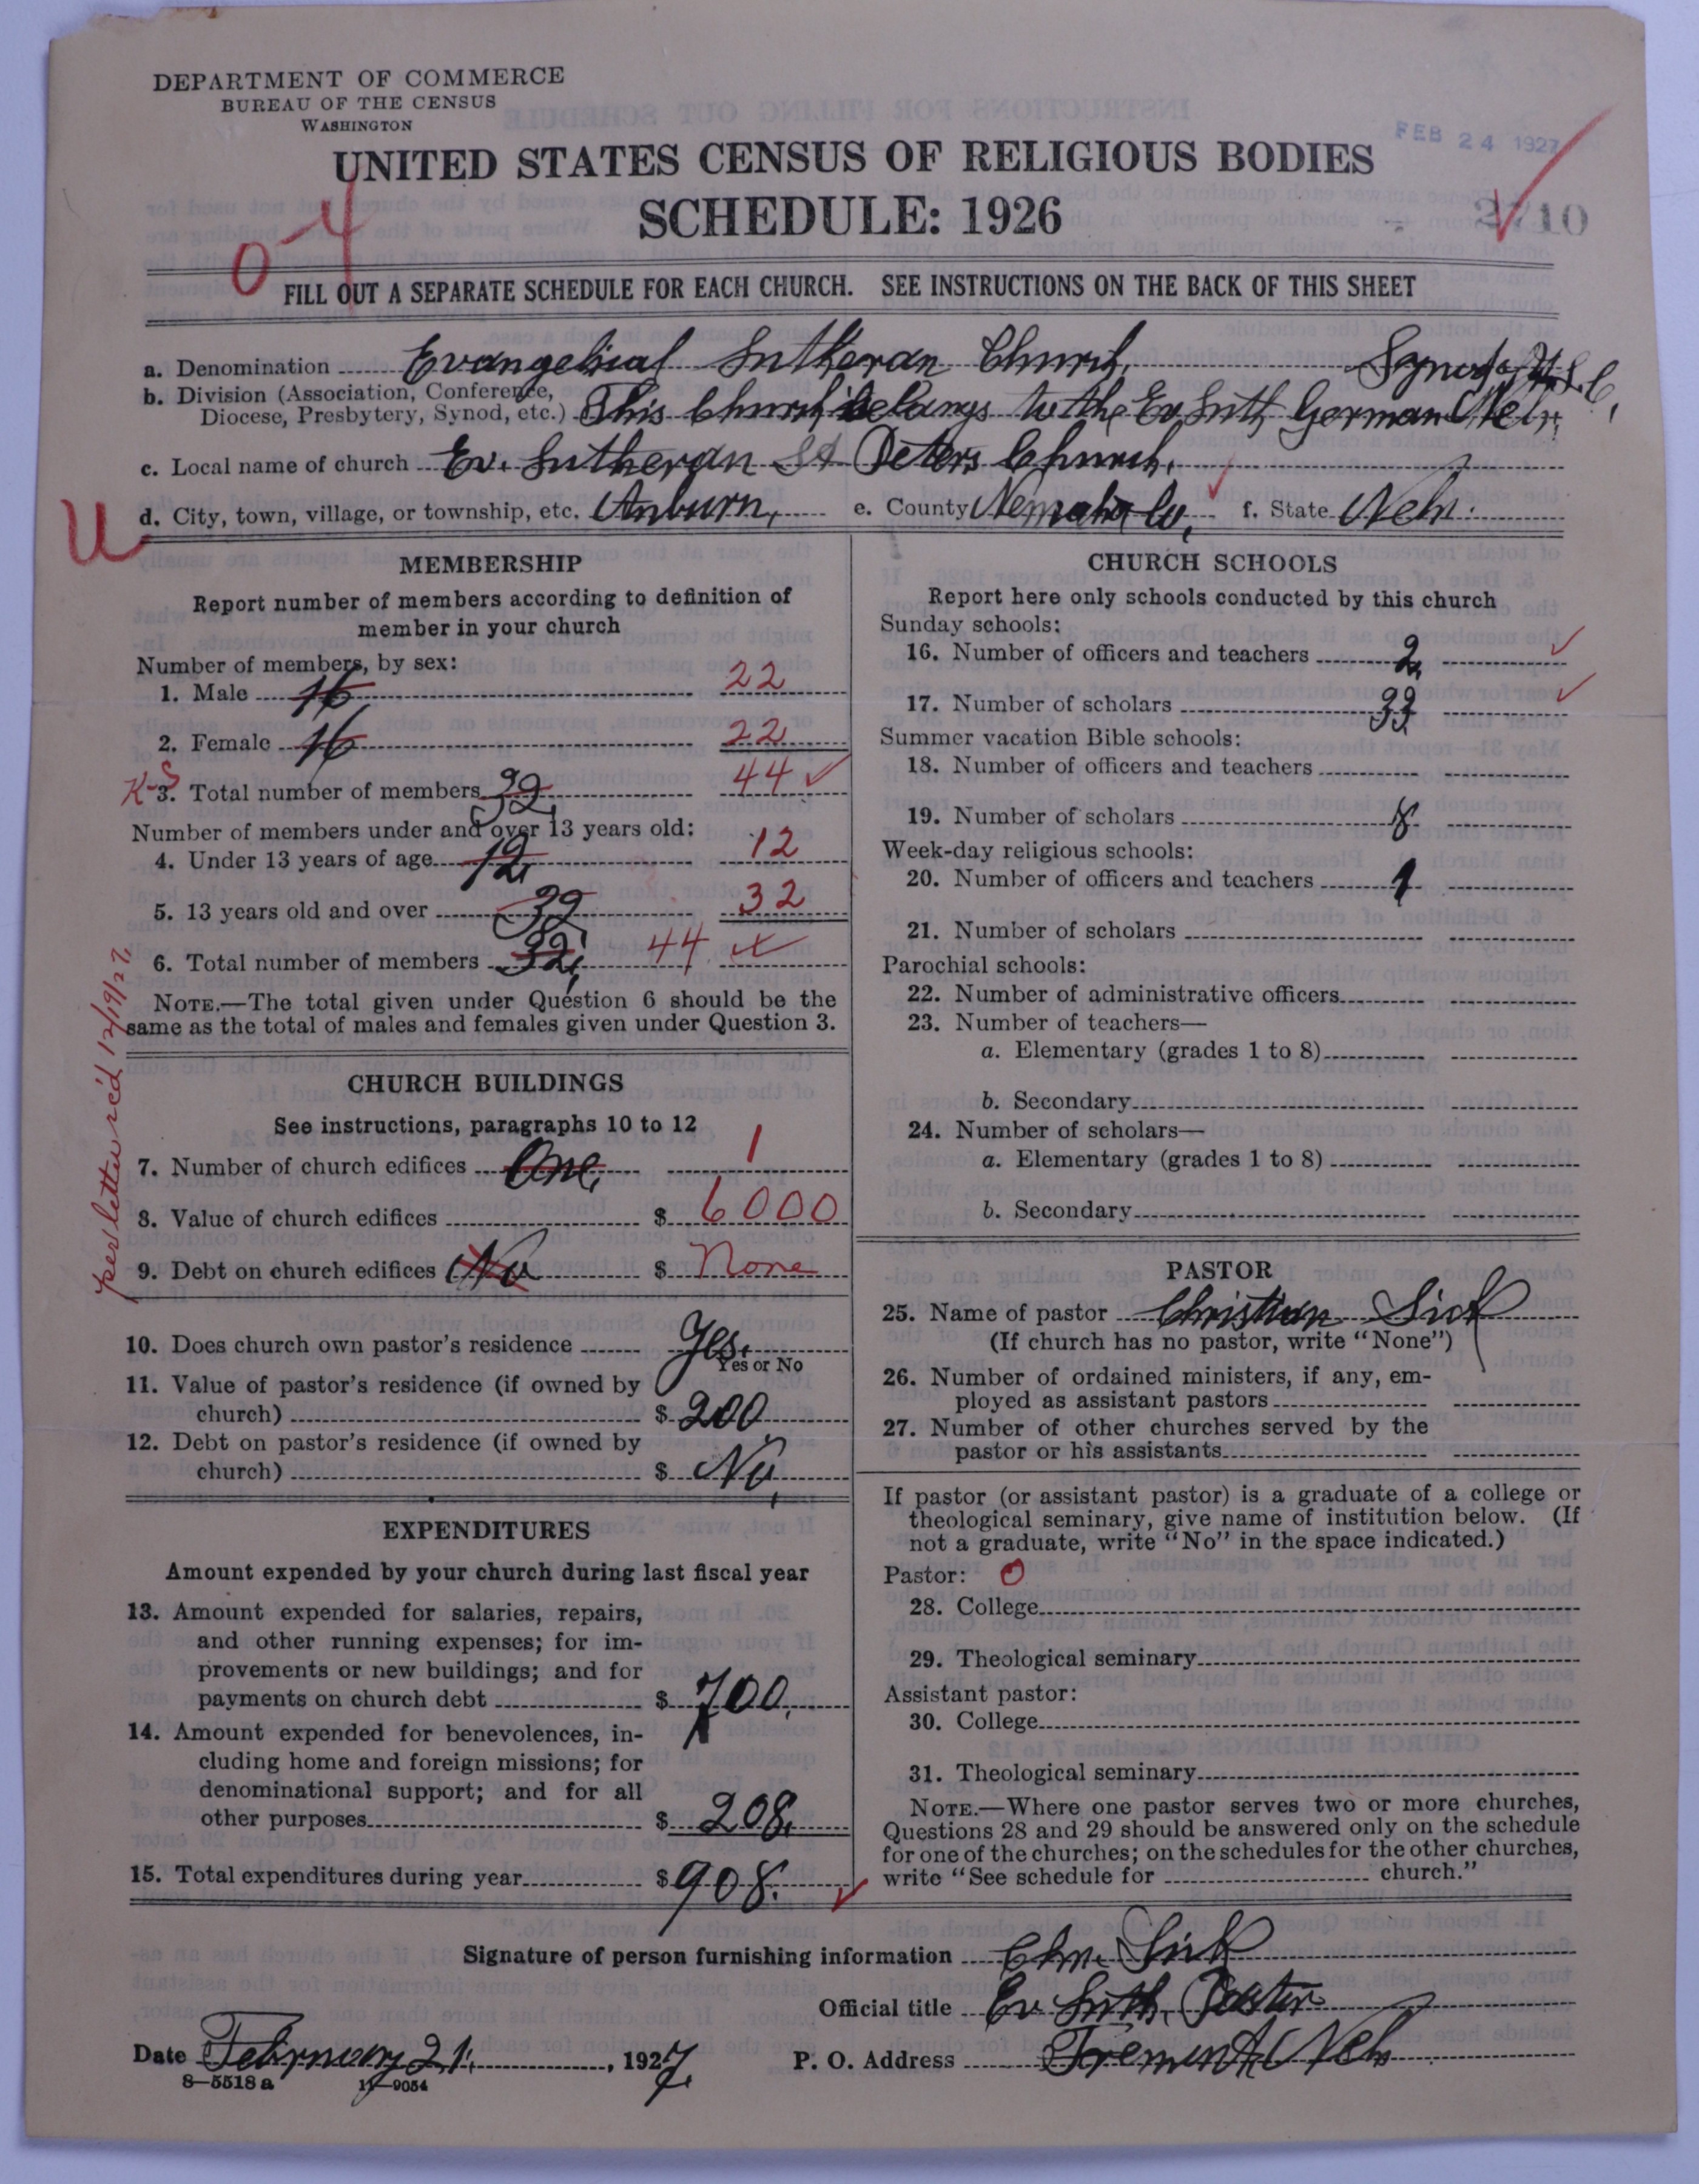 DEPARTMENT OF COMMERCE
BUREAU OF THE CENSUS
WASHINGTON
FEB 24 1927
UNITED STATES CENSUS OF RELIGIOUS BODIES
SCHEDULE: 1926
2710
04
FILL OUT A SEPARATE SCHEDULE FOR EACH CHURCH. SEE INSTRUCTIONS ON THE BACK OF THIS SHEET
a. Denomination Evangelical Lutheran Church,
b. Division (Association, Conference, Diocese, Presbytery, Synod, etc.) This Church belongs to the Ev Luth German Nebr. Synod
c. Local name of church Ev. Lutheran St Peters Church,
U
d. City, town, village, or township, etc. Auburn, e. County Nemaha Co, f. State Nebr.
MEMBERSHIP
Report number of members according to definition of
member in your church
Number of members, by sex:
1. Male 16 22
2. Female 16 22
K-S
3. Total number of members 32, 44
Number of members under and over 13 years old:
4. Under 13 years of age 12, 12
5. 13 years old and over 32 32
6. Total number of members 32, 44
NOTE.—The total given under Question 6 should be the
same as the total of males and females given under Question 3.
per letter rec'd 12/19/27
CHURCH BUILDINGS
See instructions, paragraphs 10 to 12
7. Number of church edifices One, 1
8. Value of church edifices $ 6000
9. Debt on church edifices No $ None
10. Does church own pastor's residence Yes.
Yes or No
11. Value of pastor's residence (if owned by
church) $ 200
12. Debt on pastor's residence (if owned by
church) $ No,
EXPENDITURES
Amount expended by your church during last fiscal year
13. Amount expended for salaries, repairs,
and other running expenses; for im-
provements or new buildings; and for
payments on church debt $ 700,
14. Amount expended for benevolences, in-
cluding home and foreign missions; for
denominational support; and for all
other purposes $ 208,
15. Total expenditures during year $ 908.
CHURCH SCHOOLS
Report here only schools conducted by this church
Sunday schools:
16. Number of officers and teachers 2,
17. Number of scholars 33
Summer vacation Bible schools:
18. Number of officers and teachers
19. Number of scholars 8
Week-day religious schools:
20. Number of officers and teachers 1
21. Number of scholars
Parochial schools:
22. Number of administrative officers
23. Number of teachers—
a. Elementary (grades 1 to 8)
b. Secondary
24. Number of scholars—
a. Elementary (grades 1 to 8)
b. Secondary
PASTOR
25. Name of pastor Christian Sick
(If church has no pastor, write "None")
26. Number of ordained ministers, if any, em-
ployed as assistant pastors
27. Number of other churches served by the
pastor or his assistants
If pastor (or assistant pastor) is a graduate of a college or
theological seminary, give name of institution below. (If
not a graduate, write "No" in the space indicated.)
Pastor: 0
28. College
29. Theological seminary
Assistant pastor:
30. College
31. Theological seminary
NOTE.—Where one pastor serves two or more churches,
Questions 28 and 29 should be answered only on the schedule
for one of the churches; on the schedules for the other churches,
write "See schedule for church."
Signature of person furnishing information Chr. Sick
Official title Ev Luth. Pastor
Date February 21, 1927. P. O. Address Fremont, Nebr
8—5518 a 11—9054